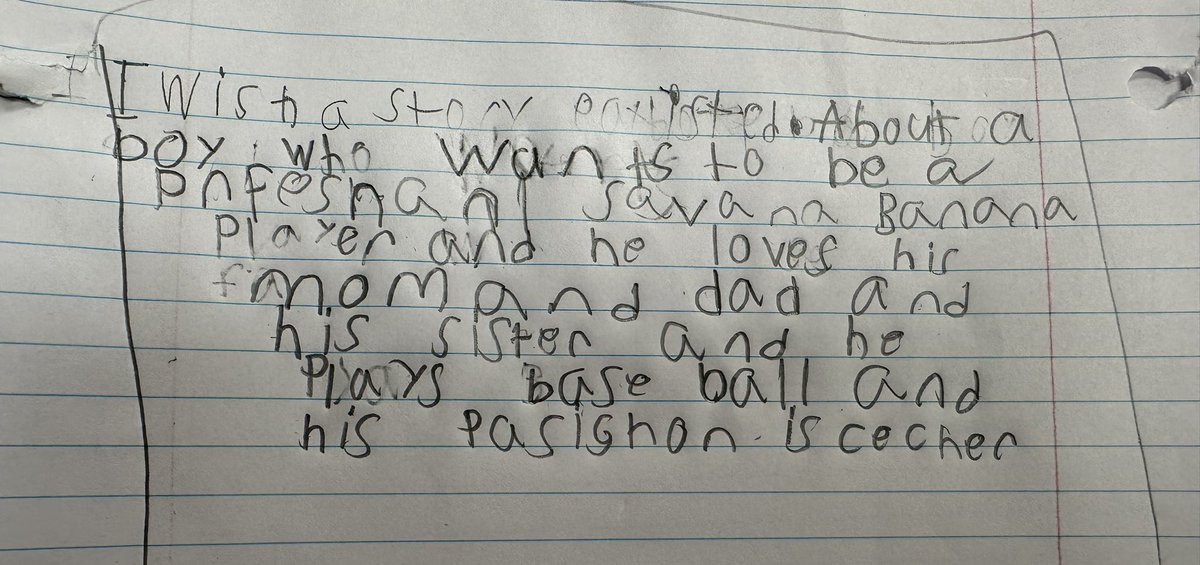 I Wish a story exsisted. About a
boy who wants to be a
pnfeshanl savana Banana
Player and he loves his
mom and dad and
his sister and he
Plays base ball and
his pasishon is cecher